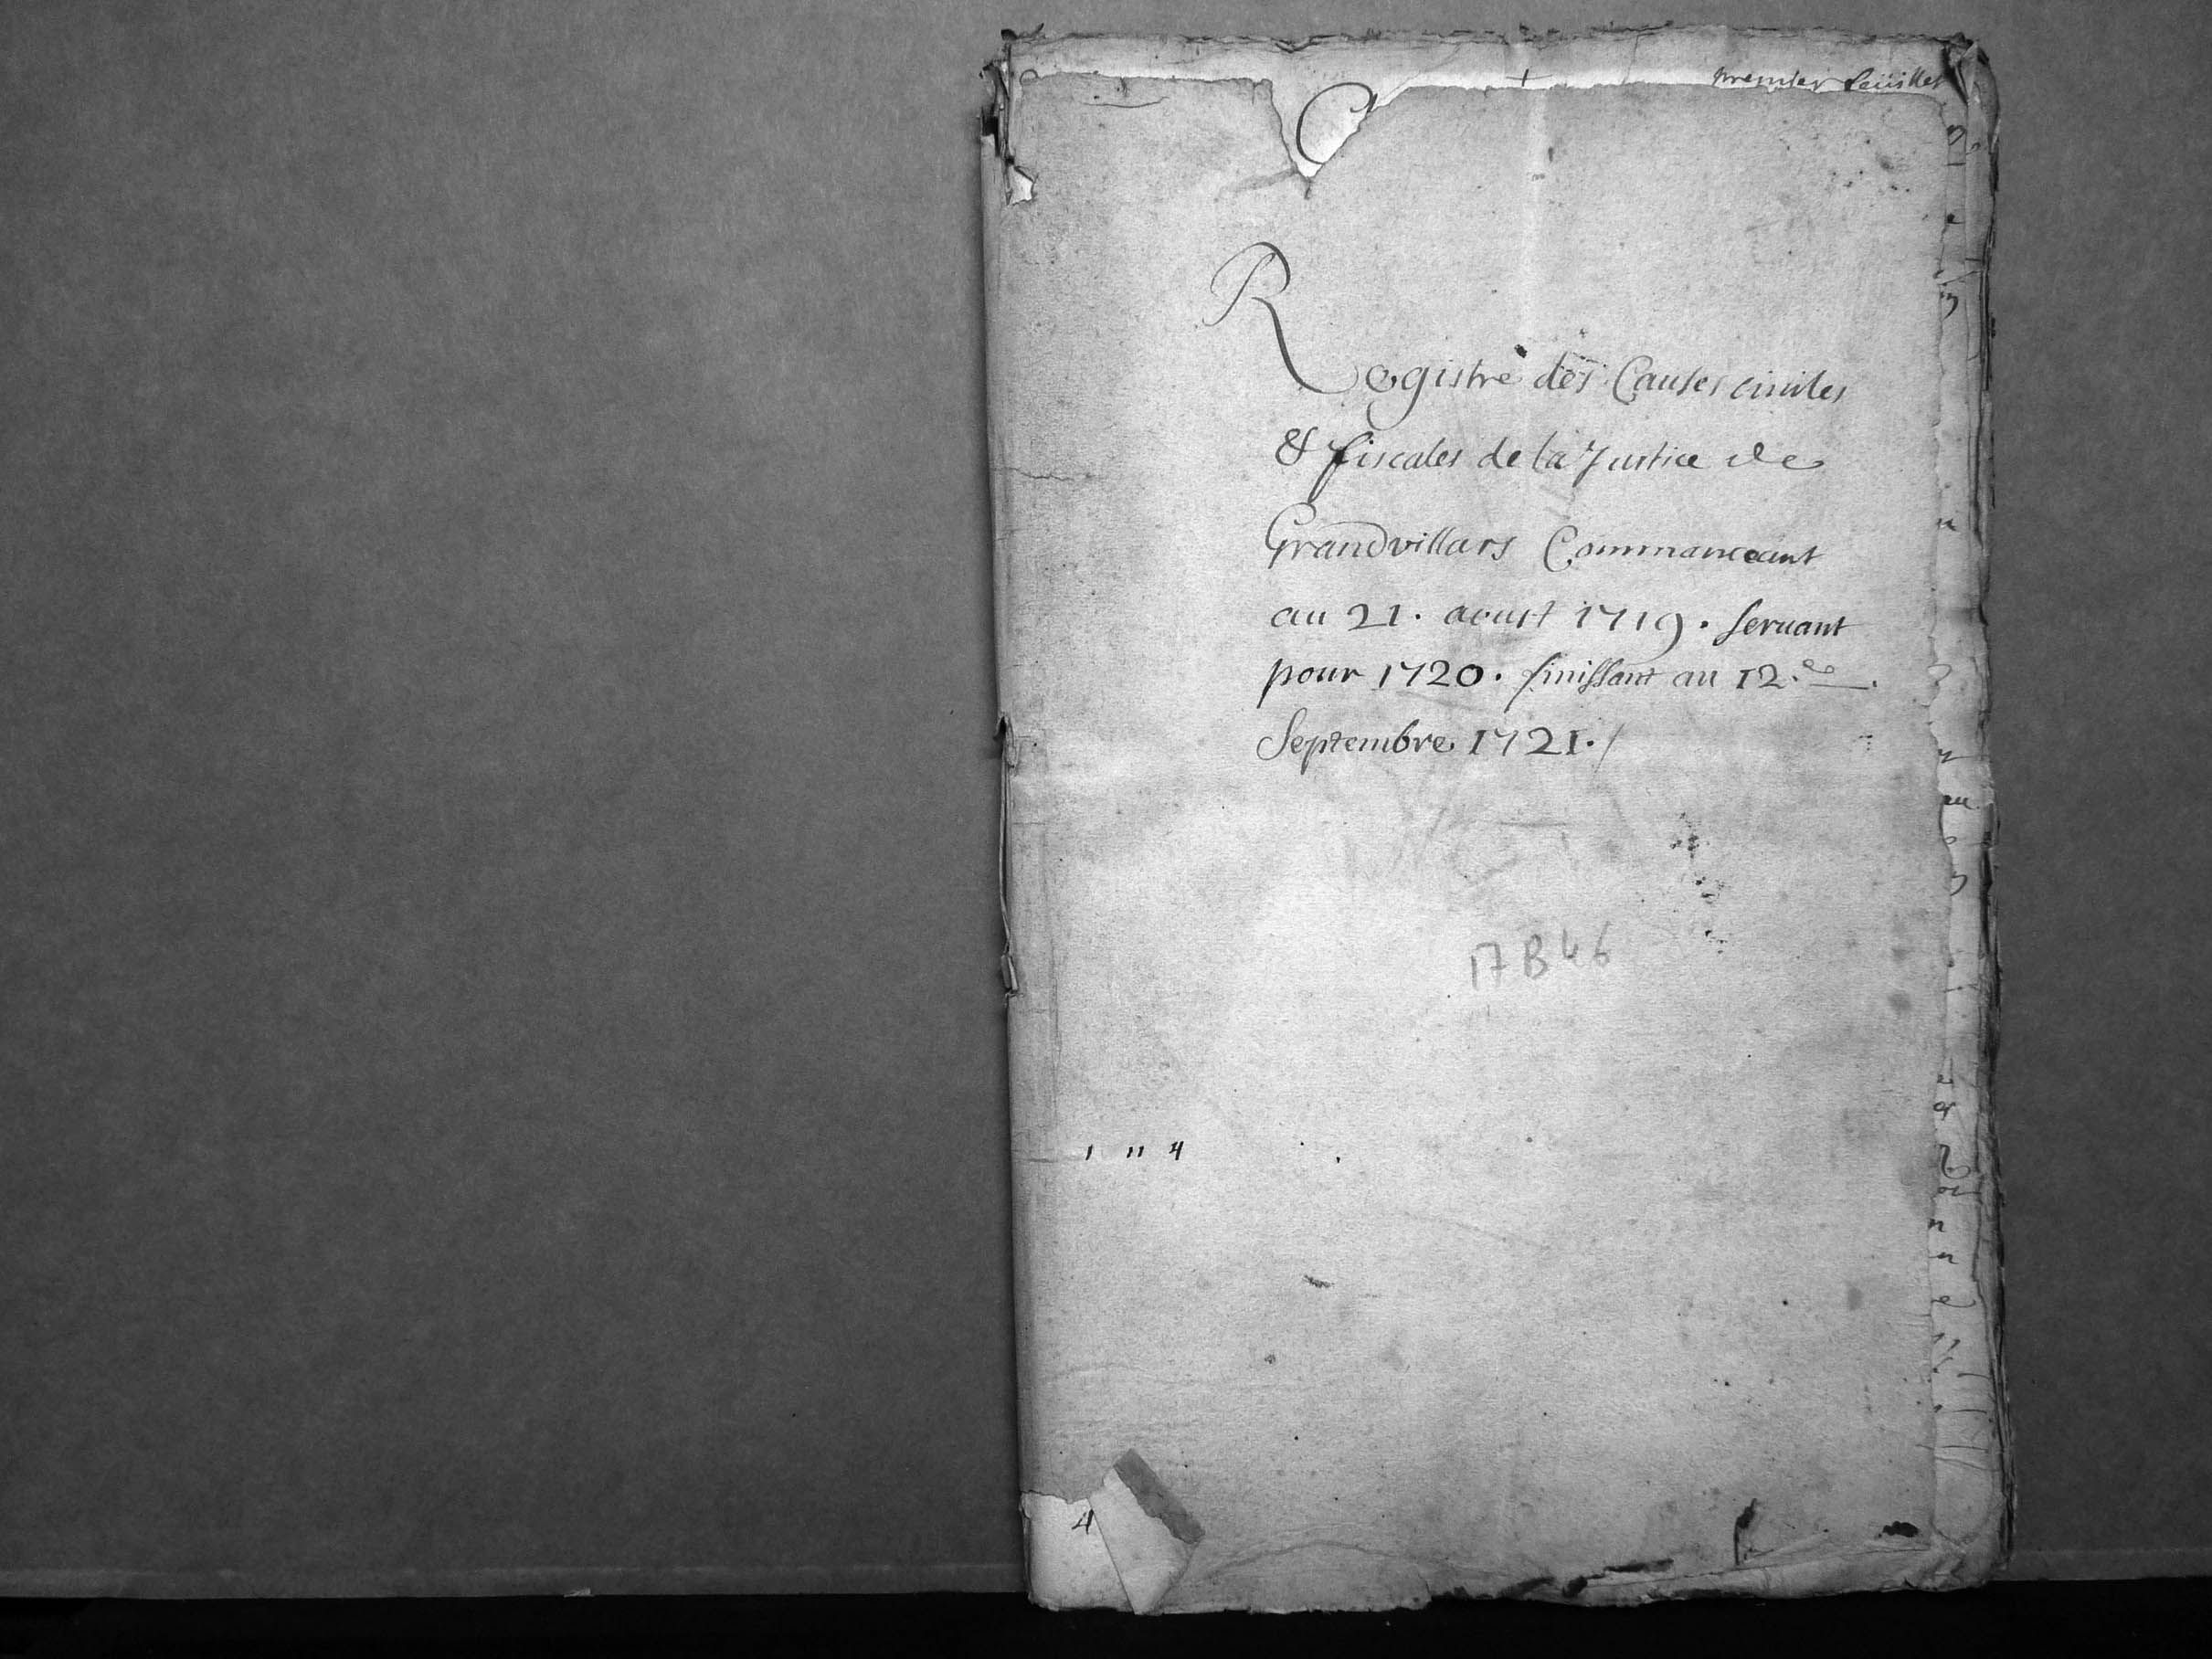 premier feüillet
Registre des Causes ciuiles
& fiscales de la Justice de
Grandvillars Commanceant
au 21. aoust 1719. seruant
pour 1720. finissant au 12.e
Septembre 1721./
17 B 46
1 " 4